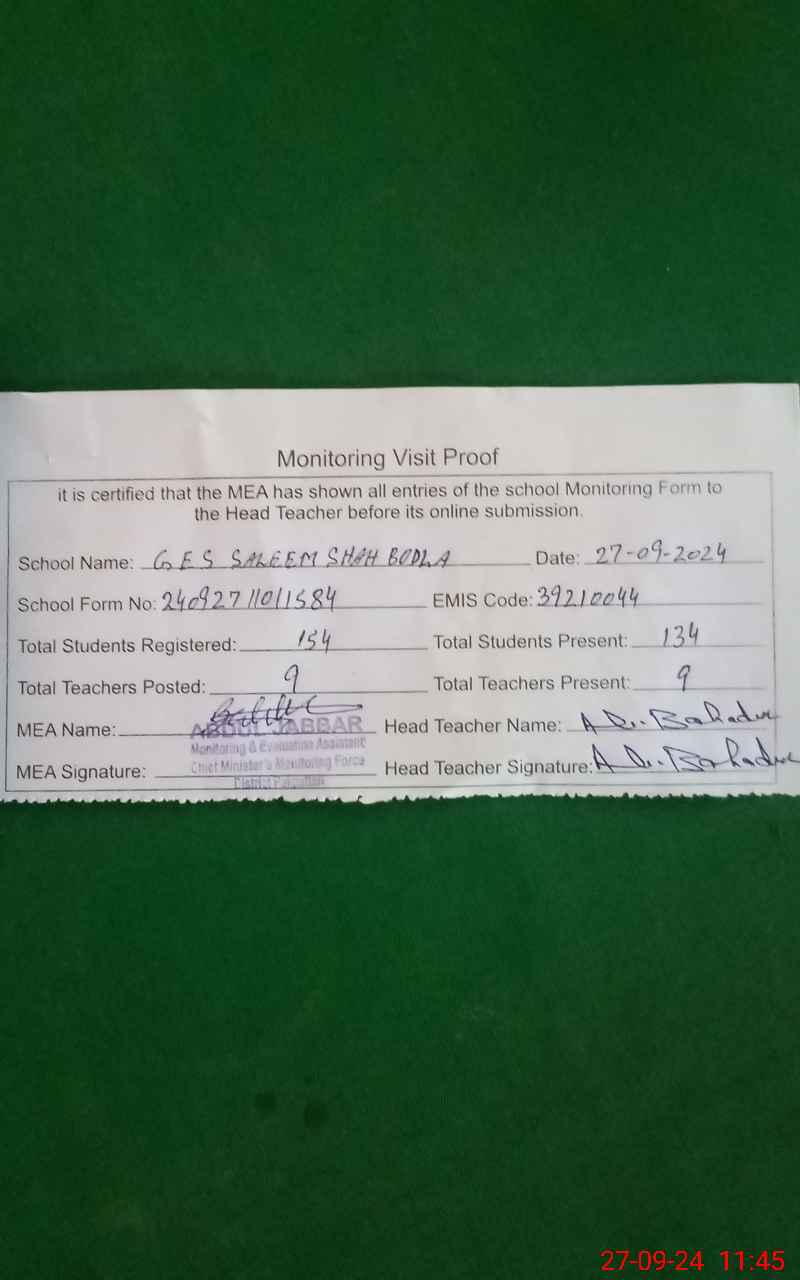 Monitoring Visit Proof
it is certified that the MEA has shown all entries of the school Monitoring Form to
the Head Teacher before its online submission.
School Name: G E S SALEEM SHAH BODLA Date: 27-09-2024
School Form No: 24092711011584 EMIS Code: 39210044
Total Students Registered: 154 Total Students Present: 134
Total Teachers Posted: 9 Total Teachers Present: 9
MEA Name: ABDUL JABBAR Head Teacher Name: Bahadur
Monitoring & Evaluation Assistant
MEA Signature: Chief Minister's Monitoring Force Head Teacher Signature: Bahadur
District
27-09-24 11:45